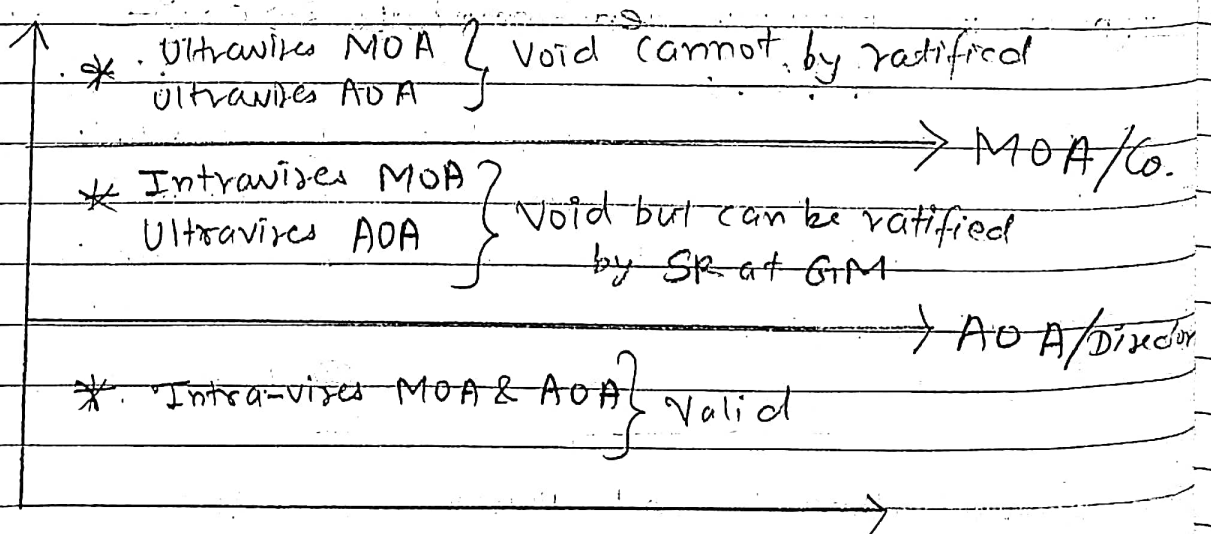 * Ultravires MOA } Void cannot by ratified
Ultravires AOA
→ MOA/Co.
* Intravires MOA
Ultravires AOA } Void but can be ratified
by SR at GM
→ AOA/Director
* Intra-vires MOA & AOA } Valid